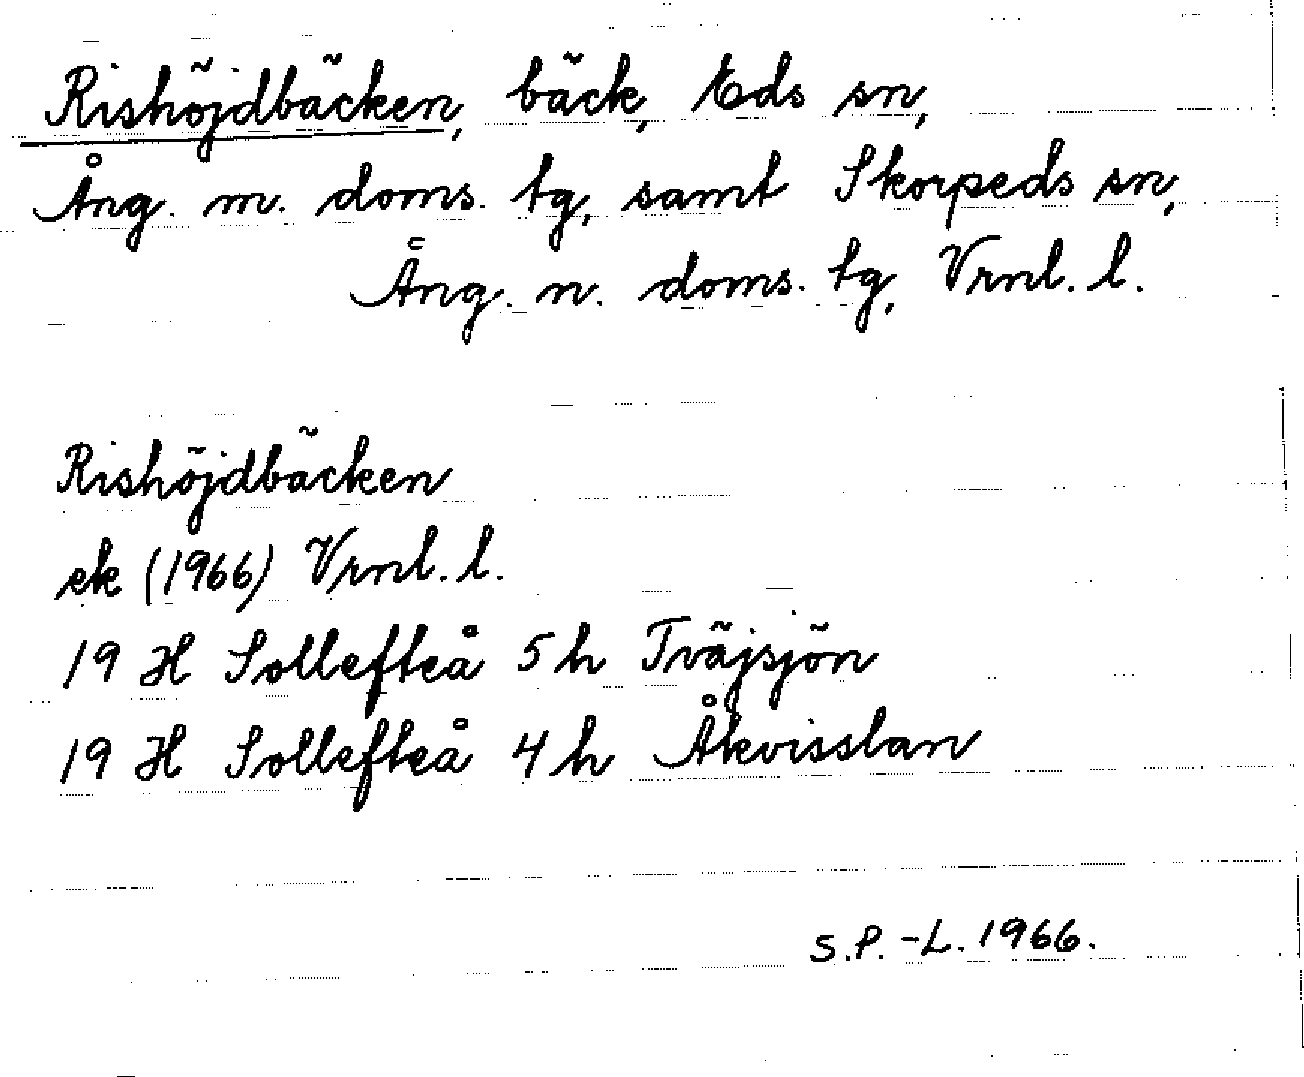 Rishöjdbäcken, bäck, Eds sn,
Ång. m. doms. tg, samt Skorpeds sn,
Ång. n. doms. tg, Vrnl. l.
Rishöjdbäcken
ek (1966) Vrnl. l.
19 H Sollefteå 5 h Tväjsjön
19 H Sollefteå 4 h Åkvisslan
S.P.-L. 1966.